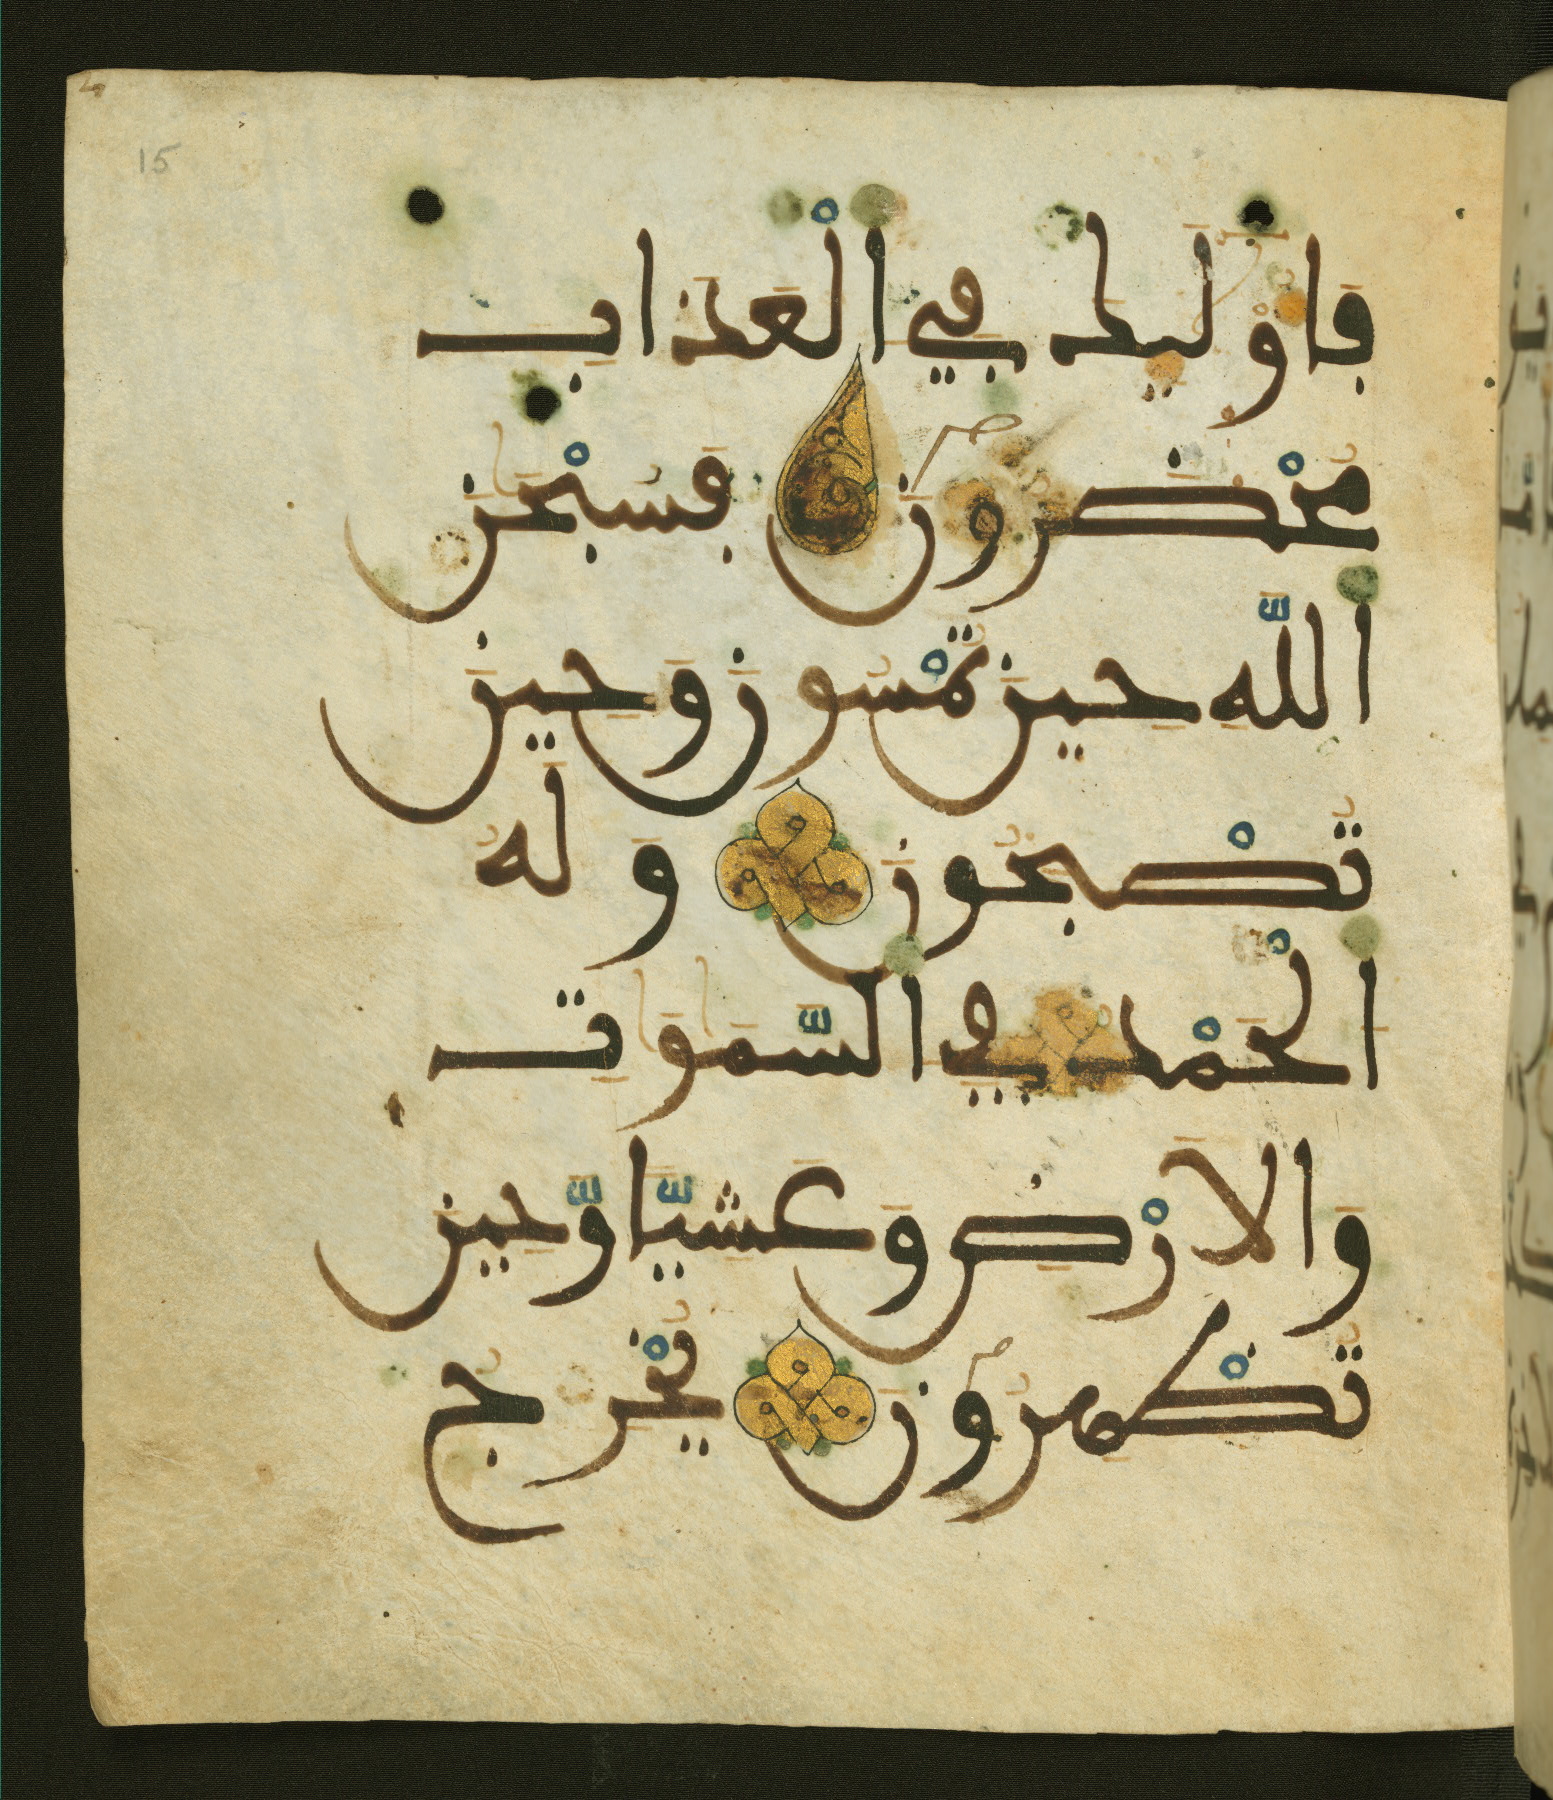 15
فَأُوْلَٰٓئِكَ فِي اَ۬لْعَذَابِ
مُحْضَرُونَ فَسُبْحَٰنَ
اَ۬للَّهِ حِينَ تُمْسُونَ وَحِينَ
تُصْبِحُونَ وَلَهُ
اُ۬لْحَمْدُ فِي اِ۬لسَّمَٰوَٰتِ
وَالَارْضِ وَعَشِيّاً وَّحِينَ
تُظْهِرُونَ يُخْرِجُ